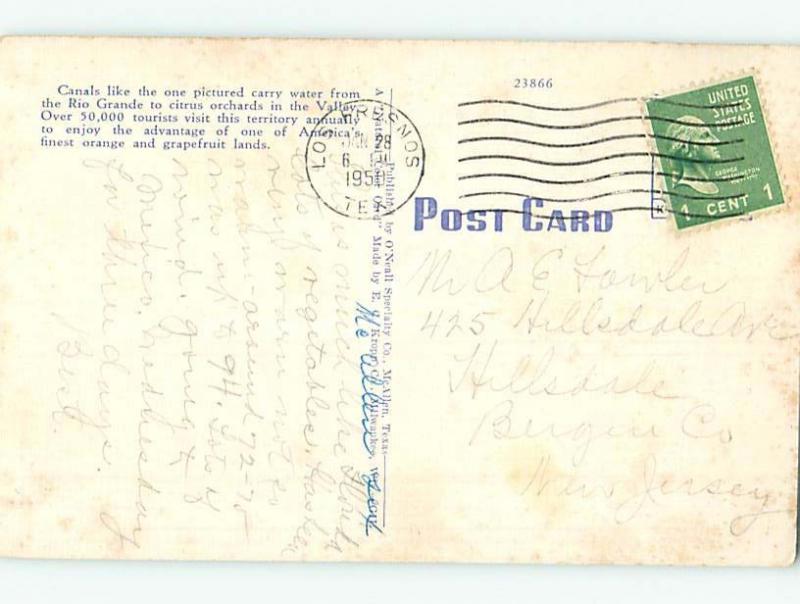 Canals like the one pictured carry water from
the Rio Grande to citrus orchards in the Valley.
Over 50,000 tourists visit this territory annually
to enjoy the advantage of one of America's
finest orange and grapefruit lands.
23866
LOS FRESNOS
JAN 28
6 PM
195
TEX
UNITED
STATES
POSTAGE
GEORGE
WASHINGTON
1 CENT 1
POST CARD
Published by O'Neall Specialty Co., McAllen, Texas
Card" Made by E. C. Kropp Co., Milwaukee, Wis.
McAllen Tex
Mr A E Fowler
425 Hillsdale Ave
Hillsdale
Bergen Co
New Jersey
is much like Florida
Lots of vegetables. Has been
very warm not so
warm - around 72-75
was up to 94. Lots of
wind. Going to
Mexico, Wednesday
for three days.
Best.